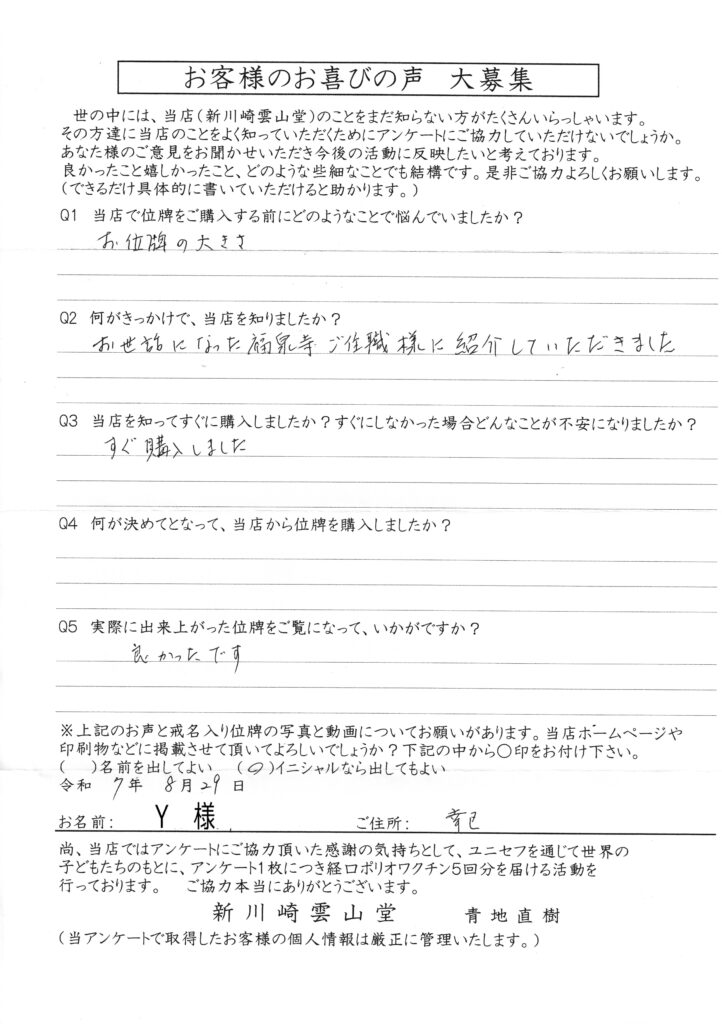 お客様のお喜びの声　大募集
世の中には、当店(新川崎雲山堂)のことをまだ知らない方がたくさんいらっしゃいます。
その方達に当店のことをよく知っていただくためにアンケートにご協力していただけないでしょうか。
あなた様のご意見をお聞かせいただき今後の活動に反映したいと考えております。
良かったこと嬉しかったこと、どのような些細なことでも結構です。是非ご協力よろしくお願いします。
(できるだけ具体的に書いていただけると助かります。)
Q1 当店で位牌をご購入する前にどのようなことで悩んでいましたか？
お位牌の大きさ
Q2 何がきっかけで、当店を知りましたか？
お世話になった福泉寺ご住職様に紹介していただきました
Q3 当店を知ってすぐに購入しましたか？すぐにしなかった場合どんなことが不安になりましたか？
すぐ購入しました
Q4 何が決めてとなって、当店から位牌を購入しましたか？
Q5 実際に出来上がった位牌をご覧になって、いかがですか？
良かったです
※上記のお声と戒名入り位牌の写真と動画についてお願いがあります。当店ホームページや
印刷物などに掲載させて頂いてよろしいでしょうか？下記の中から〇印をお付け下さい。
(　)名前を出してよい　(〇)イニシャルなら出してもよい
令和 7年 8月29日
お名前： Y 様　ご住所：
尚、当店ではアンケートにご協力頂いた感謝の気持ちとして、ユニセフを通じて世界の
子どもたちのもとに、アンケート1枚につき経口ポリオワクチン5回分を届ける活動を
行っております。　ご協力本当にありがとうございます。
新川崎雲山堂　青地直樹
(当アンケートで取得したお客様の個人情報は厳正に管理いたします。)